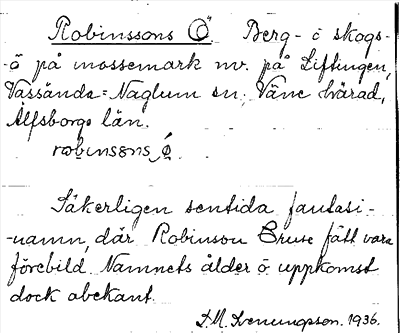 Robinssons Ö Berg- o skogs-
-ö på mossemark nv. på Liftingen,
Vassända-Naglum sn, Väne härad,
Älfsborgs län.
robinssns ö
Säkerligen sentida fantasi-
-namn, där Robinson Cruse fått vara
förebild. Namnets ålder o uppkomst
dock obekant.
D.M. Svenungsson. 1936.